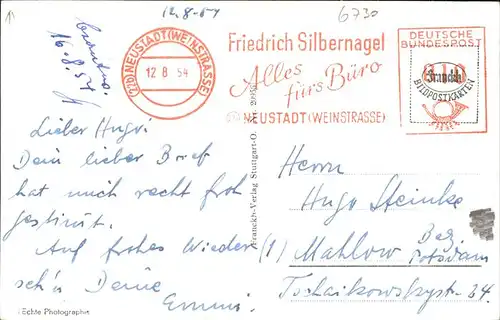 12.8.54
6730
16.8.54
(22b) NEUSTADT (WEINSTRASSE)
12 8 54
Friedrich Silbernagel
Alles
fürs Büro
NEUSTADT (WEINSTRASSE)
DEUTSCHE
BUNDESPOST
Franckh
BILDPOSTKARTEN
PFENNIG
Lieber Hugo!
Dein lieber Brief
hat mich recht froh
gestimmt.
Auf frohes Wieder
seh'n Deine
Emmi.
Echte Photographie
Franckh-Verlag Stuttgart-O.
Herrn
Hugo Steinke
(1) Mahlow Bez.
Potsdam
Tschaikowskystr. 34.